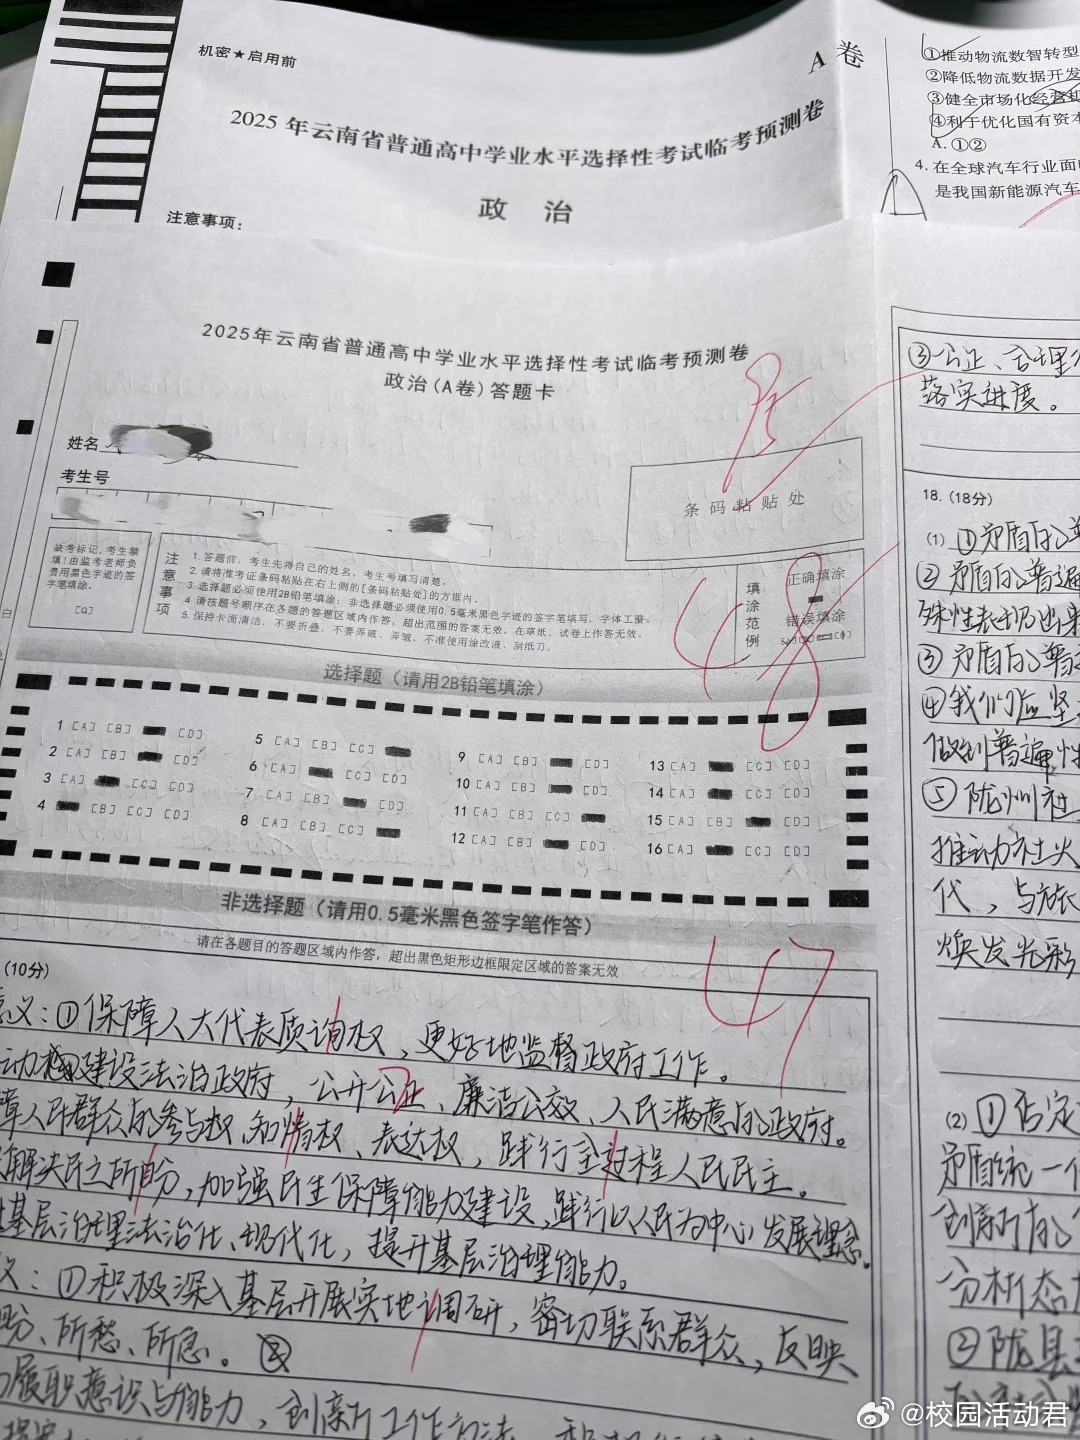 机密★启用前
A 卷
2025年云南省普通高中学业水平选择性考试临考预测卷
政 治
注意事项：
①推动物流数智转型
②降低物流数据开发
③健全市场化经营
④利于优化国有资本
A. ①②
4. 在全球汽车行业面
是我国新能源汽车
2025年云南省普通高中学业水平选择性考试临考预测卷
政治(A卷)答题卡
姓名
考生号
条码粘贴处
缺考标记，考生禁
填！由监考老师负
责用黑色字迹的签
字笔填涂。
注意事项
1. 答题前，考生先将自己的姓名、考生号填写清楚。
2. 请将准考证条码粘贴在右上侧的[条码粘贴处]的方框内。
3. 选择题必须使用2B铅笔填涂；非选择题必须使用0.5毫米黑色字迹的签字笔填写，字体工整。
4. 请按题号顺序在各题的答题区域内作答，超出范围的答案无效，在草纸、试卷上作答无效。
5. 保持卡面清洁，不要折叠、不要弄破、弄皱，不准使用涂改液、刮纸刀。
填涂范例
正确填涂
错误填涂
48
选择题（请用2B铅笔填涂）
1 [A] [B] [D]
2 [A] [B] [D]
3 [A] [C] [D]
4 [B] [C] [D]
5 [A] [B] [C]
6 [A] [C] [D]
7 [A] [B] [D]
8 [A] [B] [C]
9 [A] [B] [D]
10 [A] [B] [D]
11 [A] [B] [C]
12 [A] [B] [D]
13 [A] [C] [D]
14 [A] [C] [D]
15 [A] [B] [D]
16 [A] [C] [D]
非选择题（请用0.5毫米黑色签字笔作答）
请在各题目的答题区域内作答，超出黑色矩形边框限定区域的答案无效
47
(10分)
意义：①保障人大代表质询权，更好地监督政府工作。
动建设法治政府，公开公正、廉洁公效、人民满意的政府。
障人民群众的参与权、知情权、表达权，践行全过程人民民主。
解决民之所盼，加强民生保障能力建设，践行以人民为中心发展理念。
基层治理法治化、现代化，提升基层治理能力。
义：①积极深入基层开展实地调研，密切联系群众，反映
盼、所愁、所急。②
履职意识与能力，创新工作方法
③公正、合理
落实进度。
18. (18分)
(1) ①矛盾的
②矛盾的普遍
殊性表现出来
③矛盾的普
④我们应坚
做到普遍性
⑤陇州社
推动社火
代，与族
焕发光彩
(2) ①否定
矛盾统一
创新的
分析态
②陇县
@校园活动君